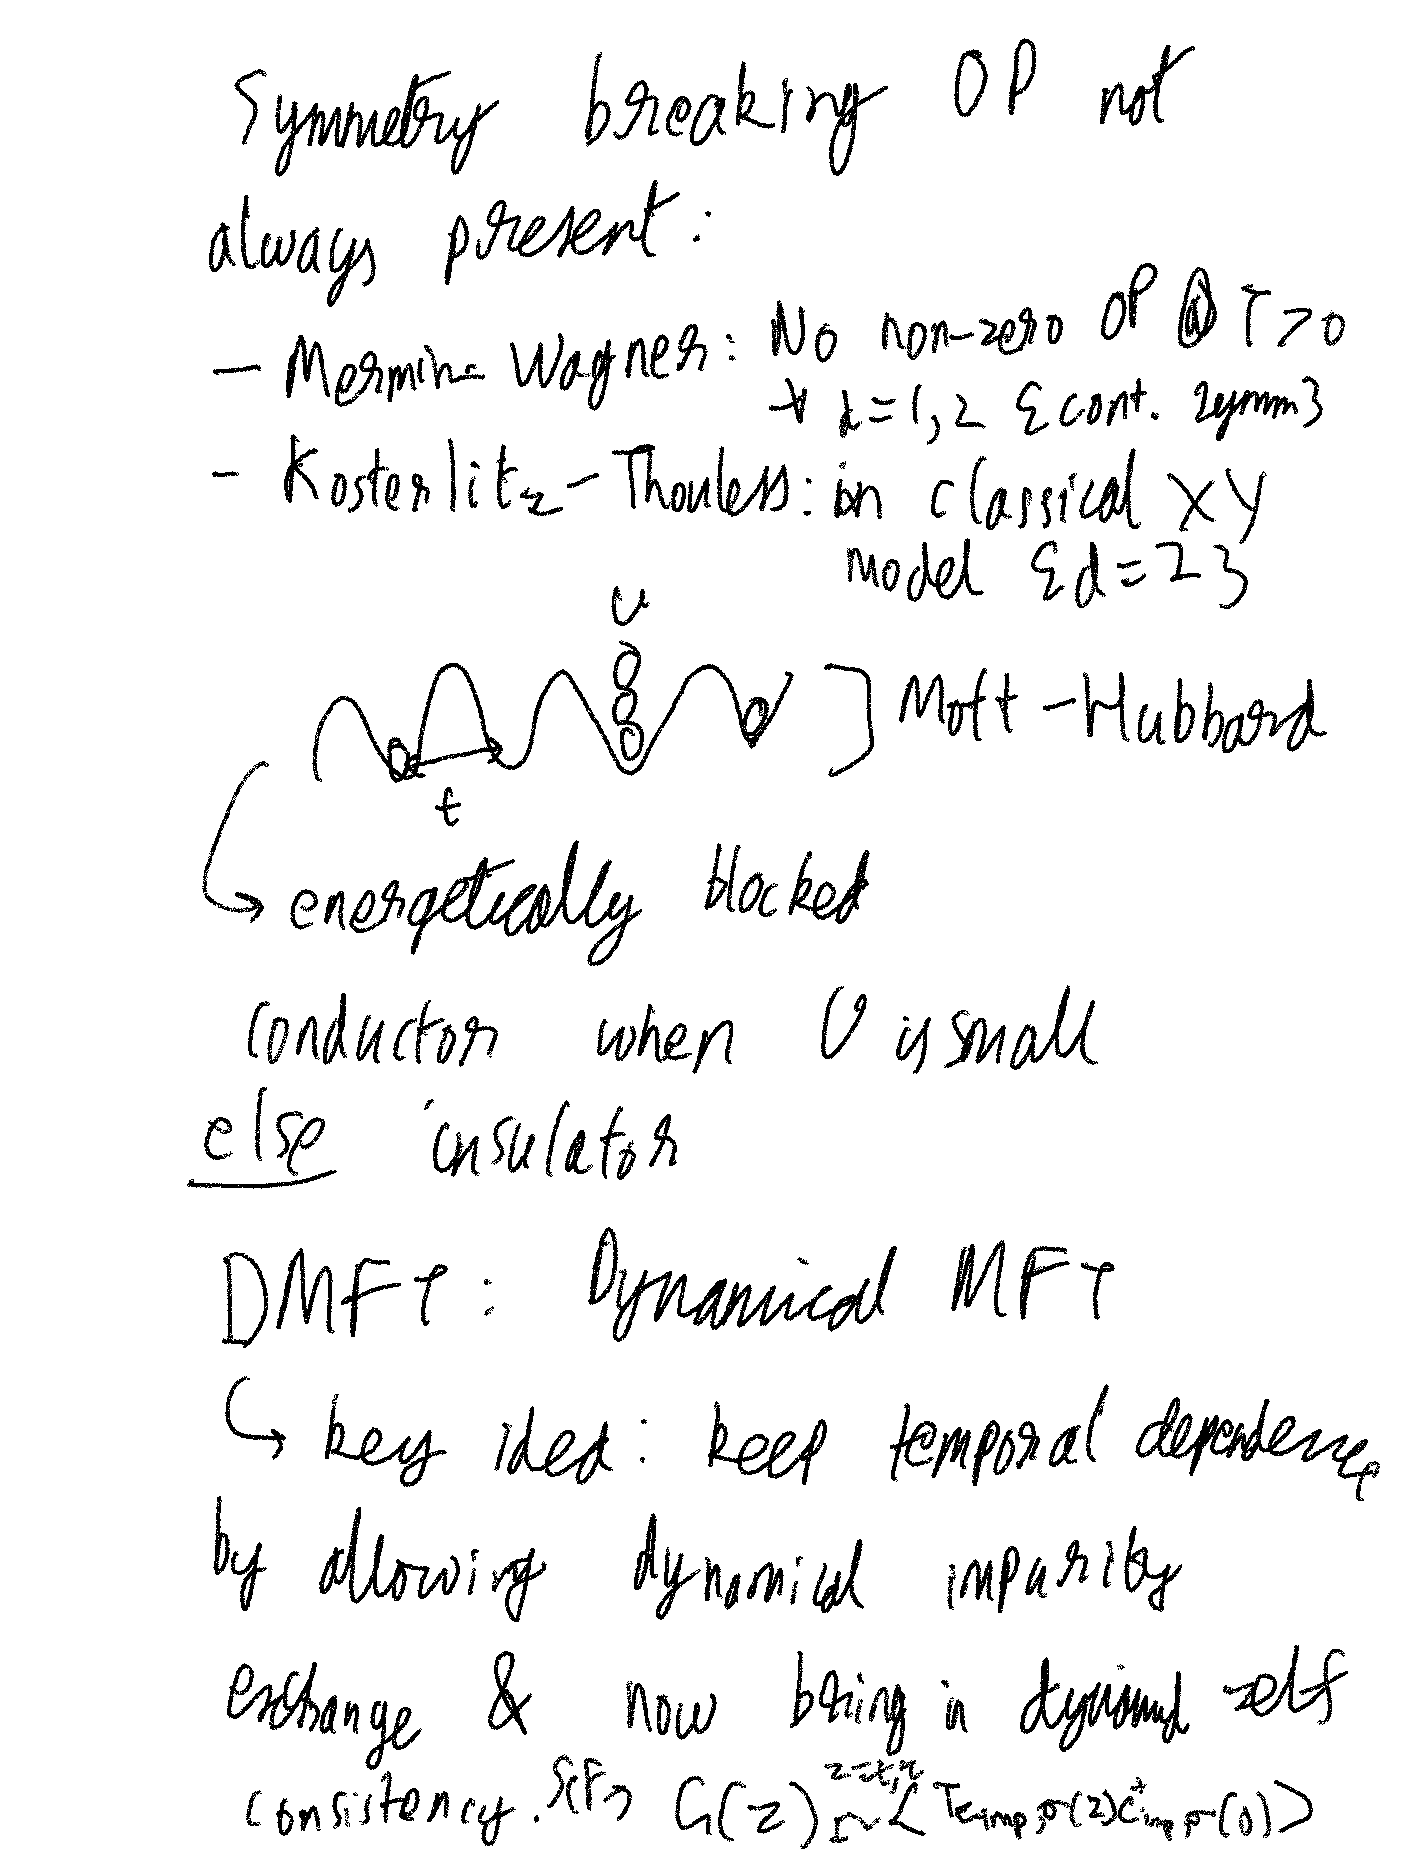 Symmetry breaking OP not
always present:
- Mermin-Wagner: No non-zero OP @ T>0
+ d=1,2 {cont. symm}
- Kosterlitz-Thouless: in classical XY
model {d=2}
U
] Mott-Hubbard
t
↳ energetically blocked
conductor when U is small
else insulator
DMFT: Dynamical MFT
↳ key idea: keep temporal dependence
by allowing dynamical impurity
exchange & now bring in dynamical self
consistency. SCF> G(z) ~ < T c_imp,σ(z) c⁺_imp,σ(0) >